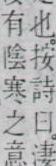 之也。按詩曰。淒
有陰寒之意